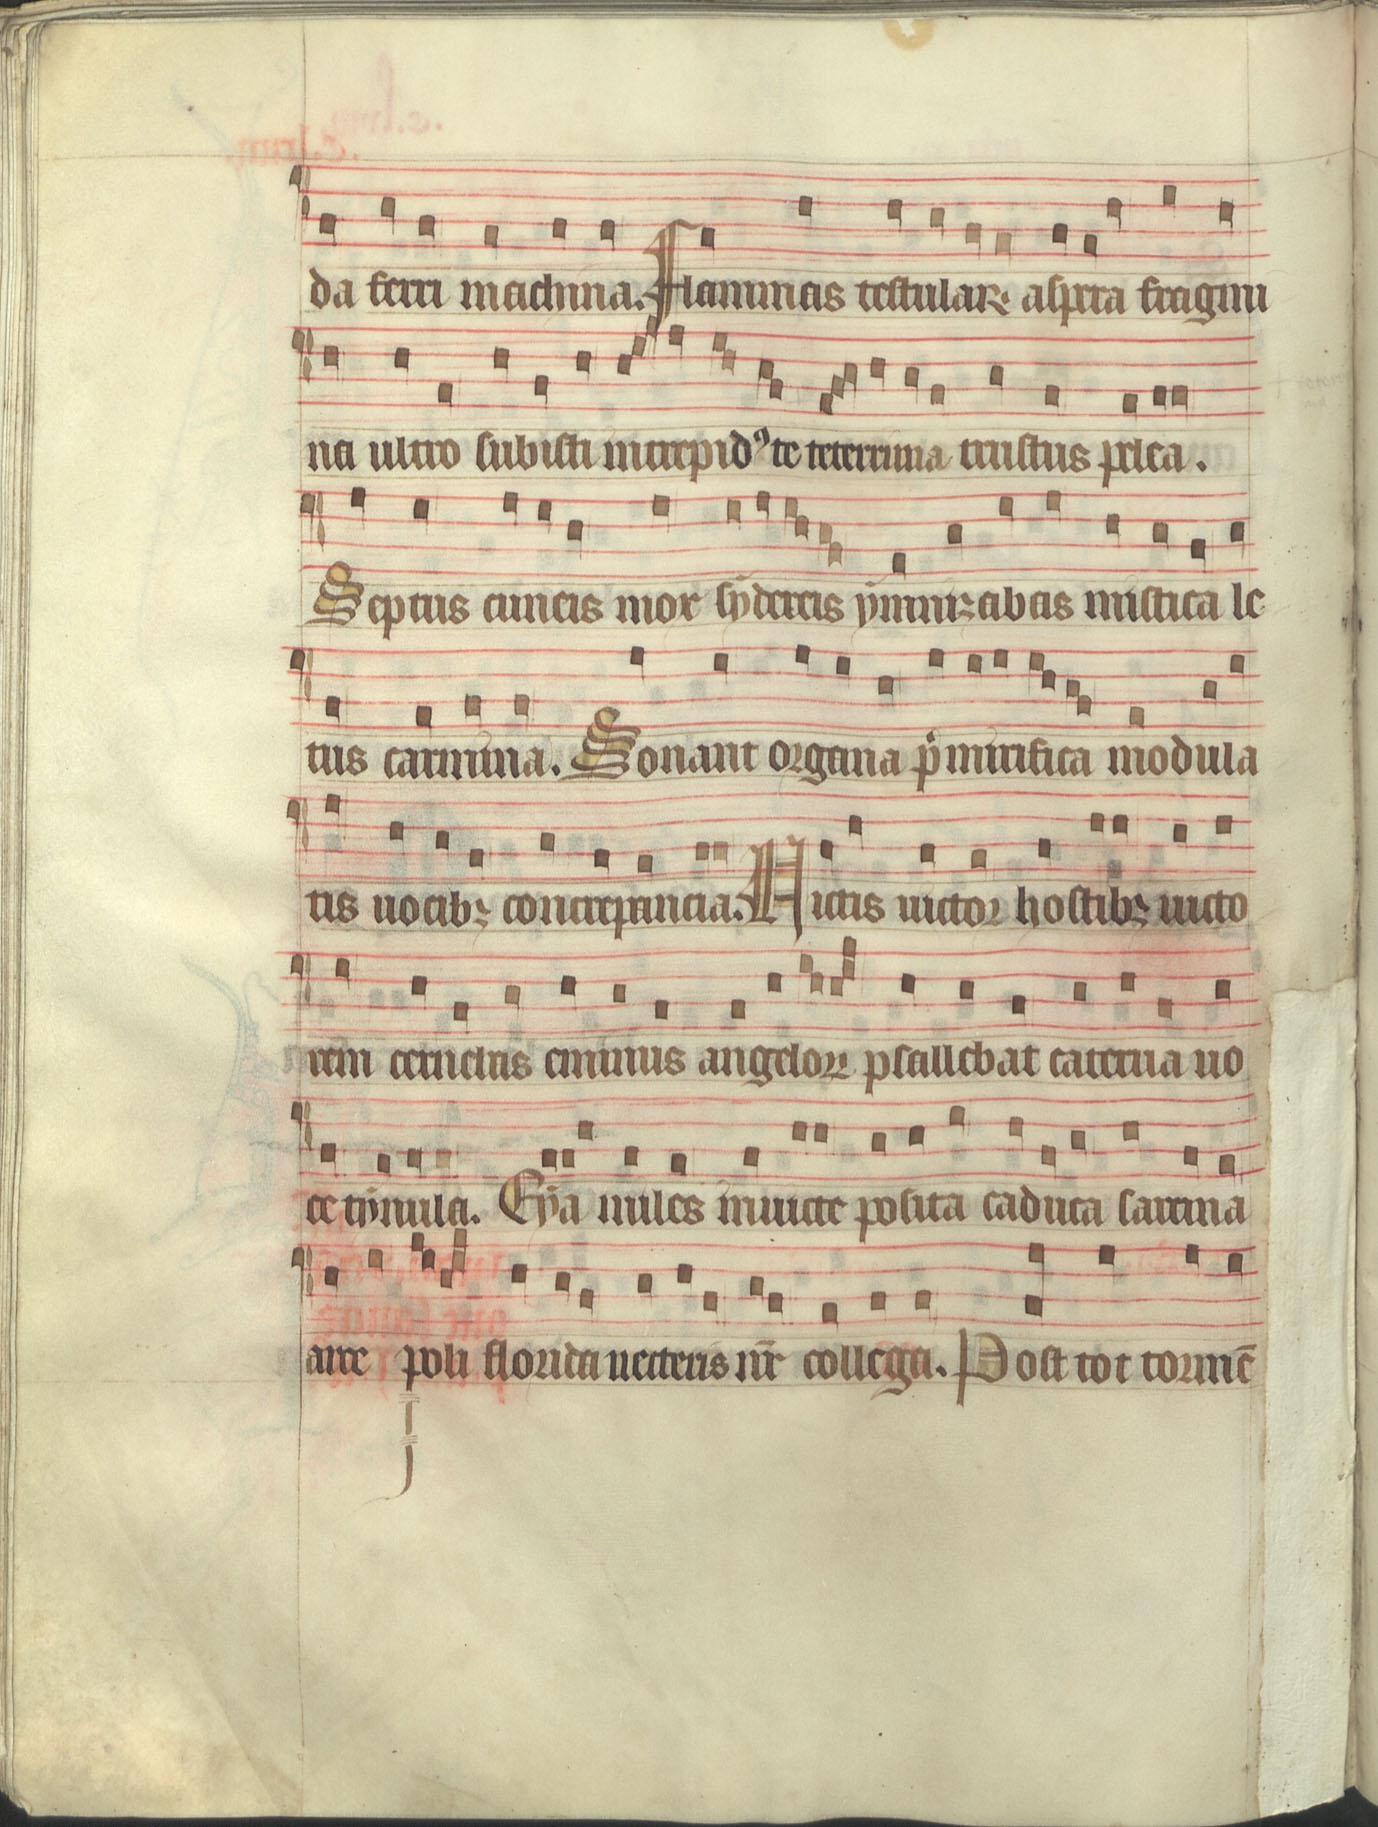 da ferri machina. Flammas testulaꝝ aspera fragmi
na ultro subisti intrepidꝰ te teterrima tristius pelea.
Septus cuneis mox sÿdereis ÿmnizabas mistica le
tus carmina. Sonant organa p̄mirifica modula
tis uocibꝫ concrepancia. Victis uictor hostibꝫ uicto
rem cernebas eminus angeloꝝ psallebat caterua uo
ce tÿnula. Eÿa miles inuicte posita caduca sarcina
arce poli florida uecteris nr̄e collega. Post tot torm̄e